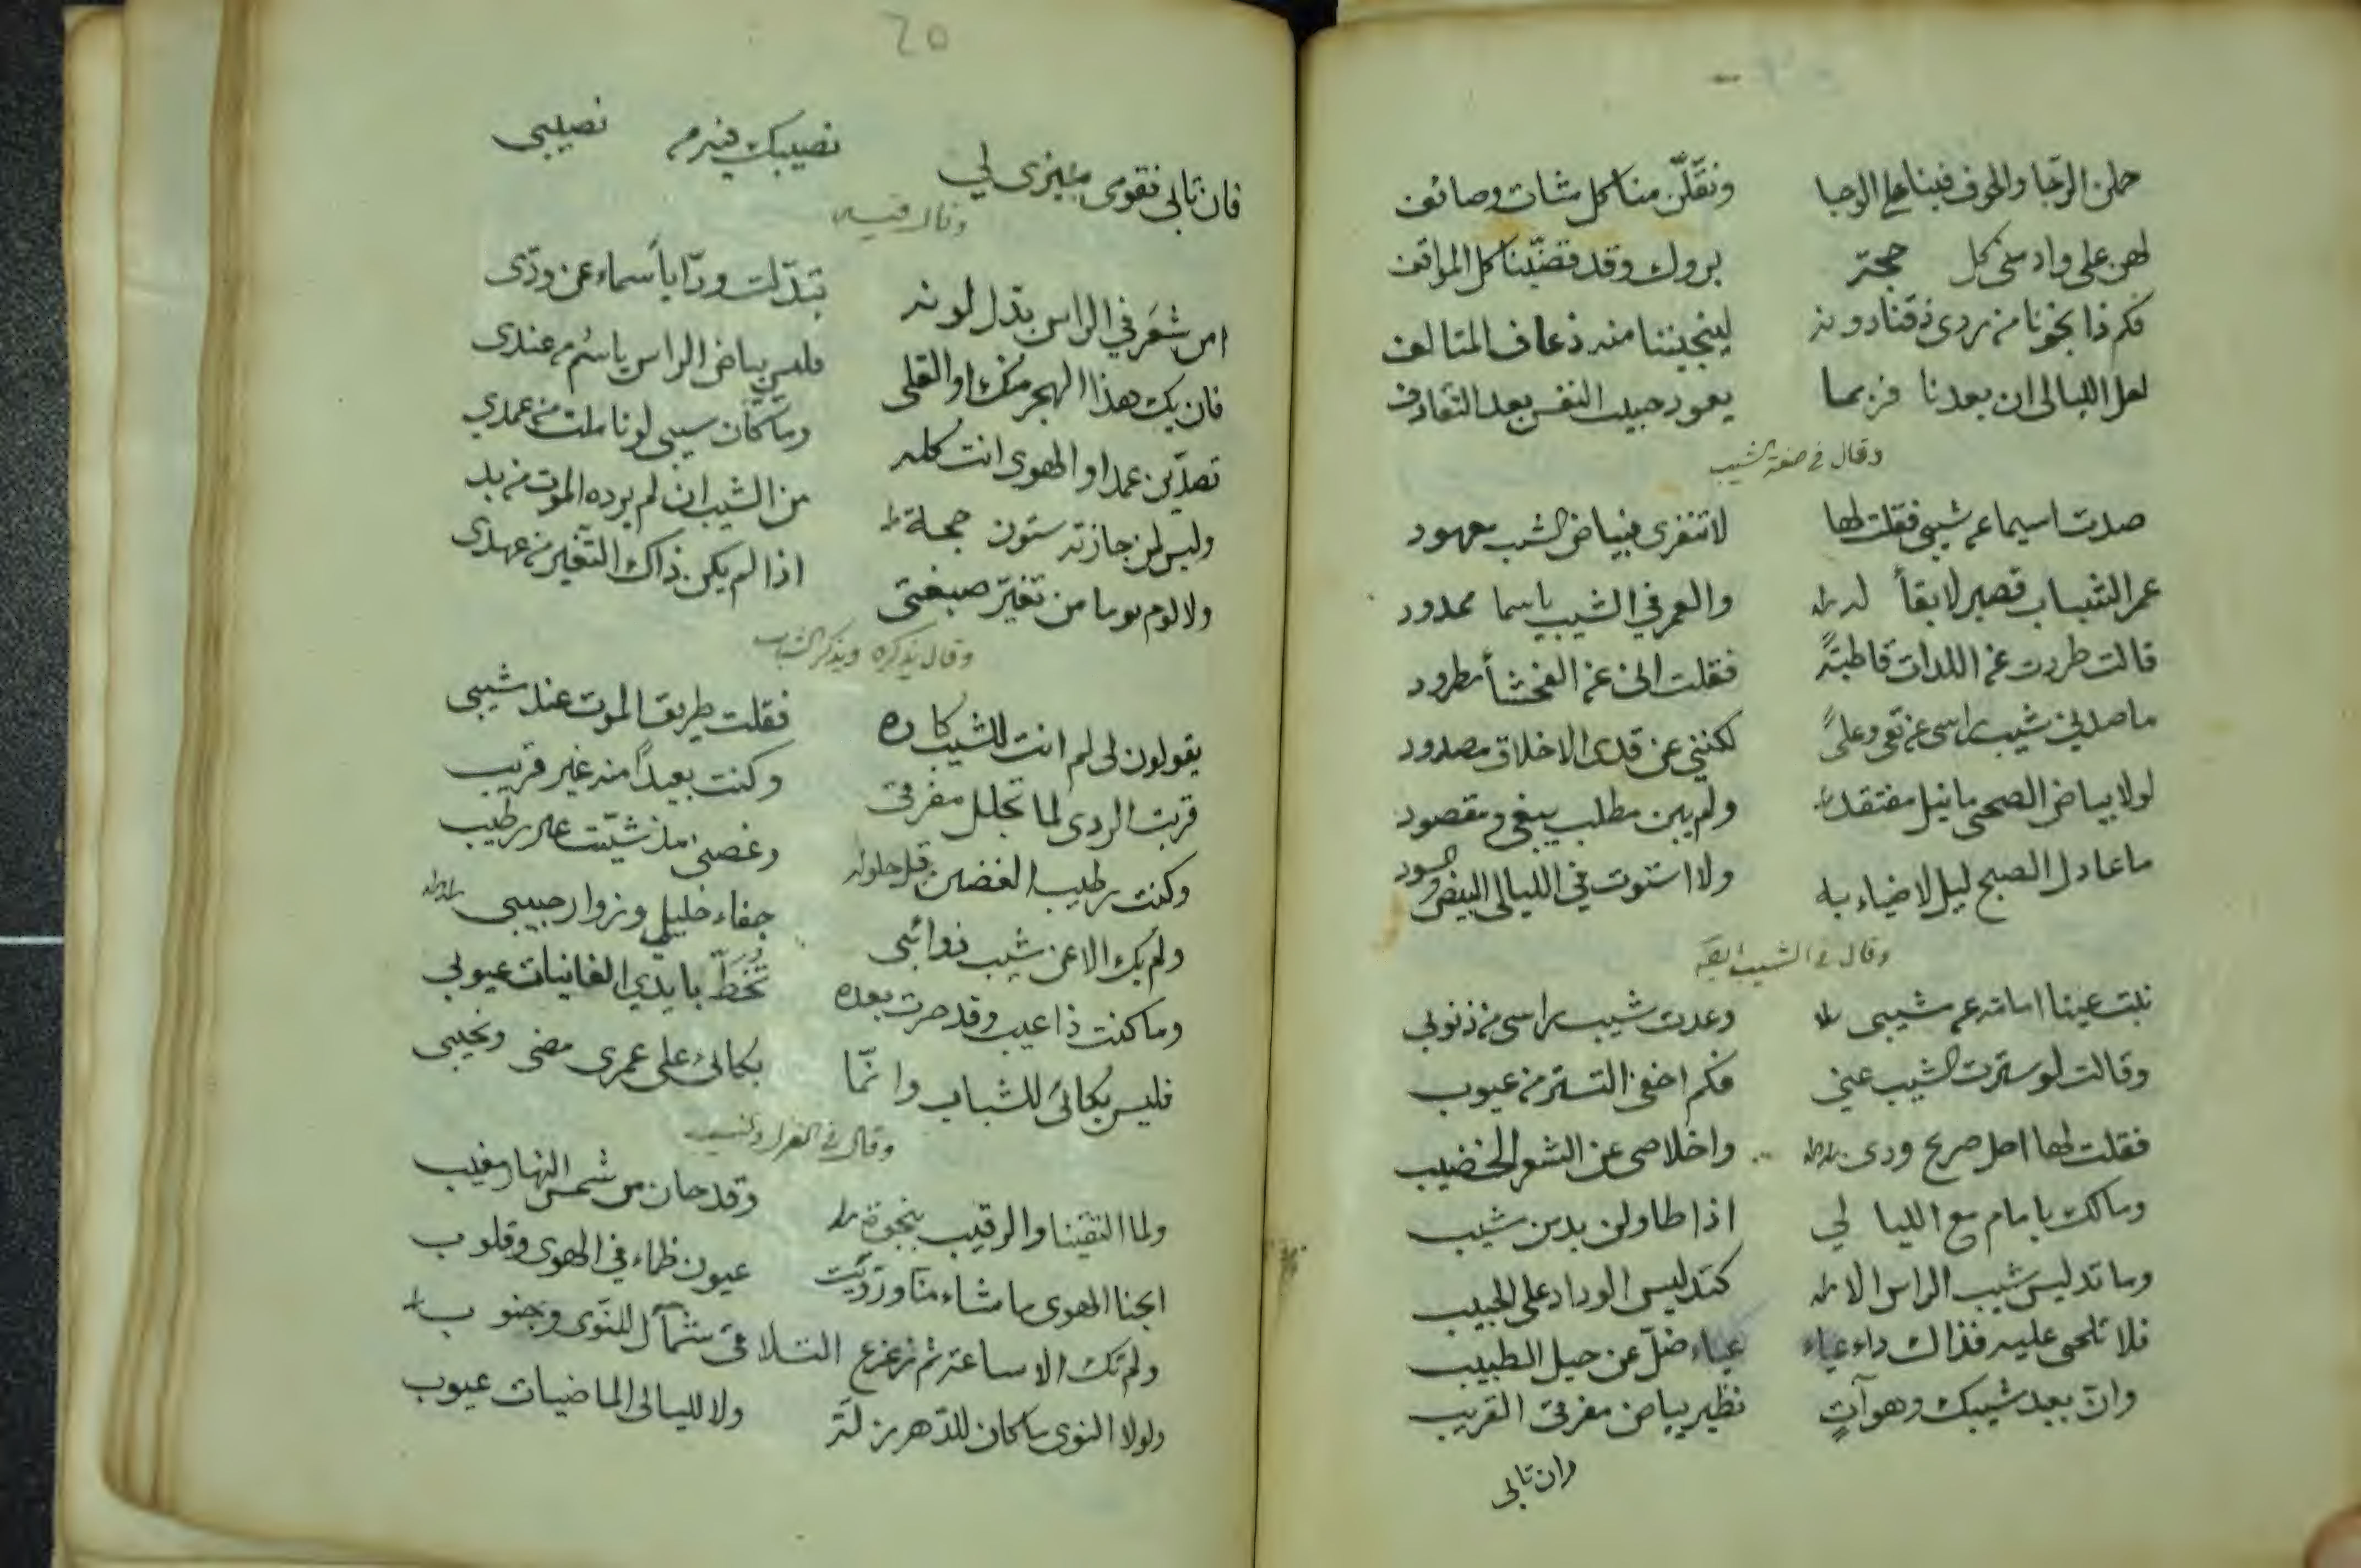 حملن الرجا والخوف فينا على الوجا ونقلن منا كل شات وصائف
لهن على واد منى كل حجة بروك وقد قضينا كل المواقف
فكم ذا نجونا من ردى ذقنا دونه لينجيننا منه ذعاف المتالف
لعل الليالي ان بعدنا فربما يعود حبيب النفس بعد التقاذف
وقال في صفة الشيب
صدت اسيما عن شيبي فقلت لها لا تنفري فبياض الشيب معهود
عمر الشباب قصير لا بقأ له والعمر في الشيب ياسما ممدود
قالت طردت عن اللدات قاطبةً فقلت اني عن الفحشأ مطرود
ما صدني شيب راسي عن تقى وعلىً لكنني عن قدى الاخلاق مصدود
لولا بياض الضحى ما نيل مفتقد ولم يبن مطلب يبغى ومقصود
ما عادل الصبح ليل لا ضياء به ولا استوت في الليالي البيض والسود
وقال في الشيب ايضا
نبت عينا امامة عن شيبي وعدت شيب راسي من ذنوبي
وقالت لو سترت الشيب عني فكم اخفى التستر من عيوب
فقلت لها اجل صريح ودى واخلاصي عن الشعر الخضيب
ومالك يا مام مع الليا لي اذا طاولن بد من شيب
وما تدليس شيب الراس الا كتدليس الوداد على الحبيب
فلا تلحى عليه فذاك داء عياء عياء ضلّ عن حيل الطبيب
وان بعيد شيبك وهو آتٍ نظير بياض مفرقى القريب
وان تابى
20
فان تابى فقومى ميزى لي نصيبك فيه م نصيبى
وقال فيه
امن شعَر في الراس بدل لونه تبدّلت ودّا يا أسماء عن ودّى
فان يك هذا الهجر منك او القلى فليس بياض الراس ياسُم م عندى
تصدّين عمدا والهوى انت كله وما كان شيبى لو تاملت من عمدي
وليس لمن جازته ستون حجة من الشيب ان لم يرده الموت من بد
ولا لوم يوما من تغيّر صبغتى اذا لم يكن ذاك التغير من عهدى
وقال يذكره ويذكر الشباب
يقولون لى لم انت للشيب كاره فقلت طريق الموت عند شيبى
قربت الردى لما تجلل مفرقى وكنت بعيداً منه غير قريب
وكنت رطيب الغصن قبل حلوله وغصنى مذ شيّبت غير رطيب
ولم يك الا عن شيب ذوائبى جفاء خليلي وزوار حبيبى
وما كنت ذا عيب وقد صرت بعده تُخَطّ بايدي الغانيات عيوبى
فليس بكائى للشباب وانّما بكائى على عمرى مضى ونحيبى
وقال في الغزل والنسيب
ولما التقينا والرقيب بنجوة وقد حان من شمس النهار مغيب
ابحنا الهوى ما شاء منا وروّيت عيون ظماء في الهوى وقلوب
ولم تك الا ساعة ثم زعزع التلاقى شمأل للنوى وجنوب
ولولا النوى ما كان للدهر زلة ولا لليالى الماضيات عيوب